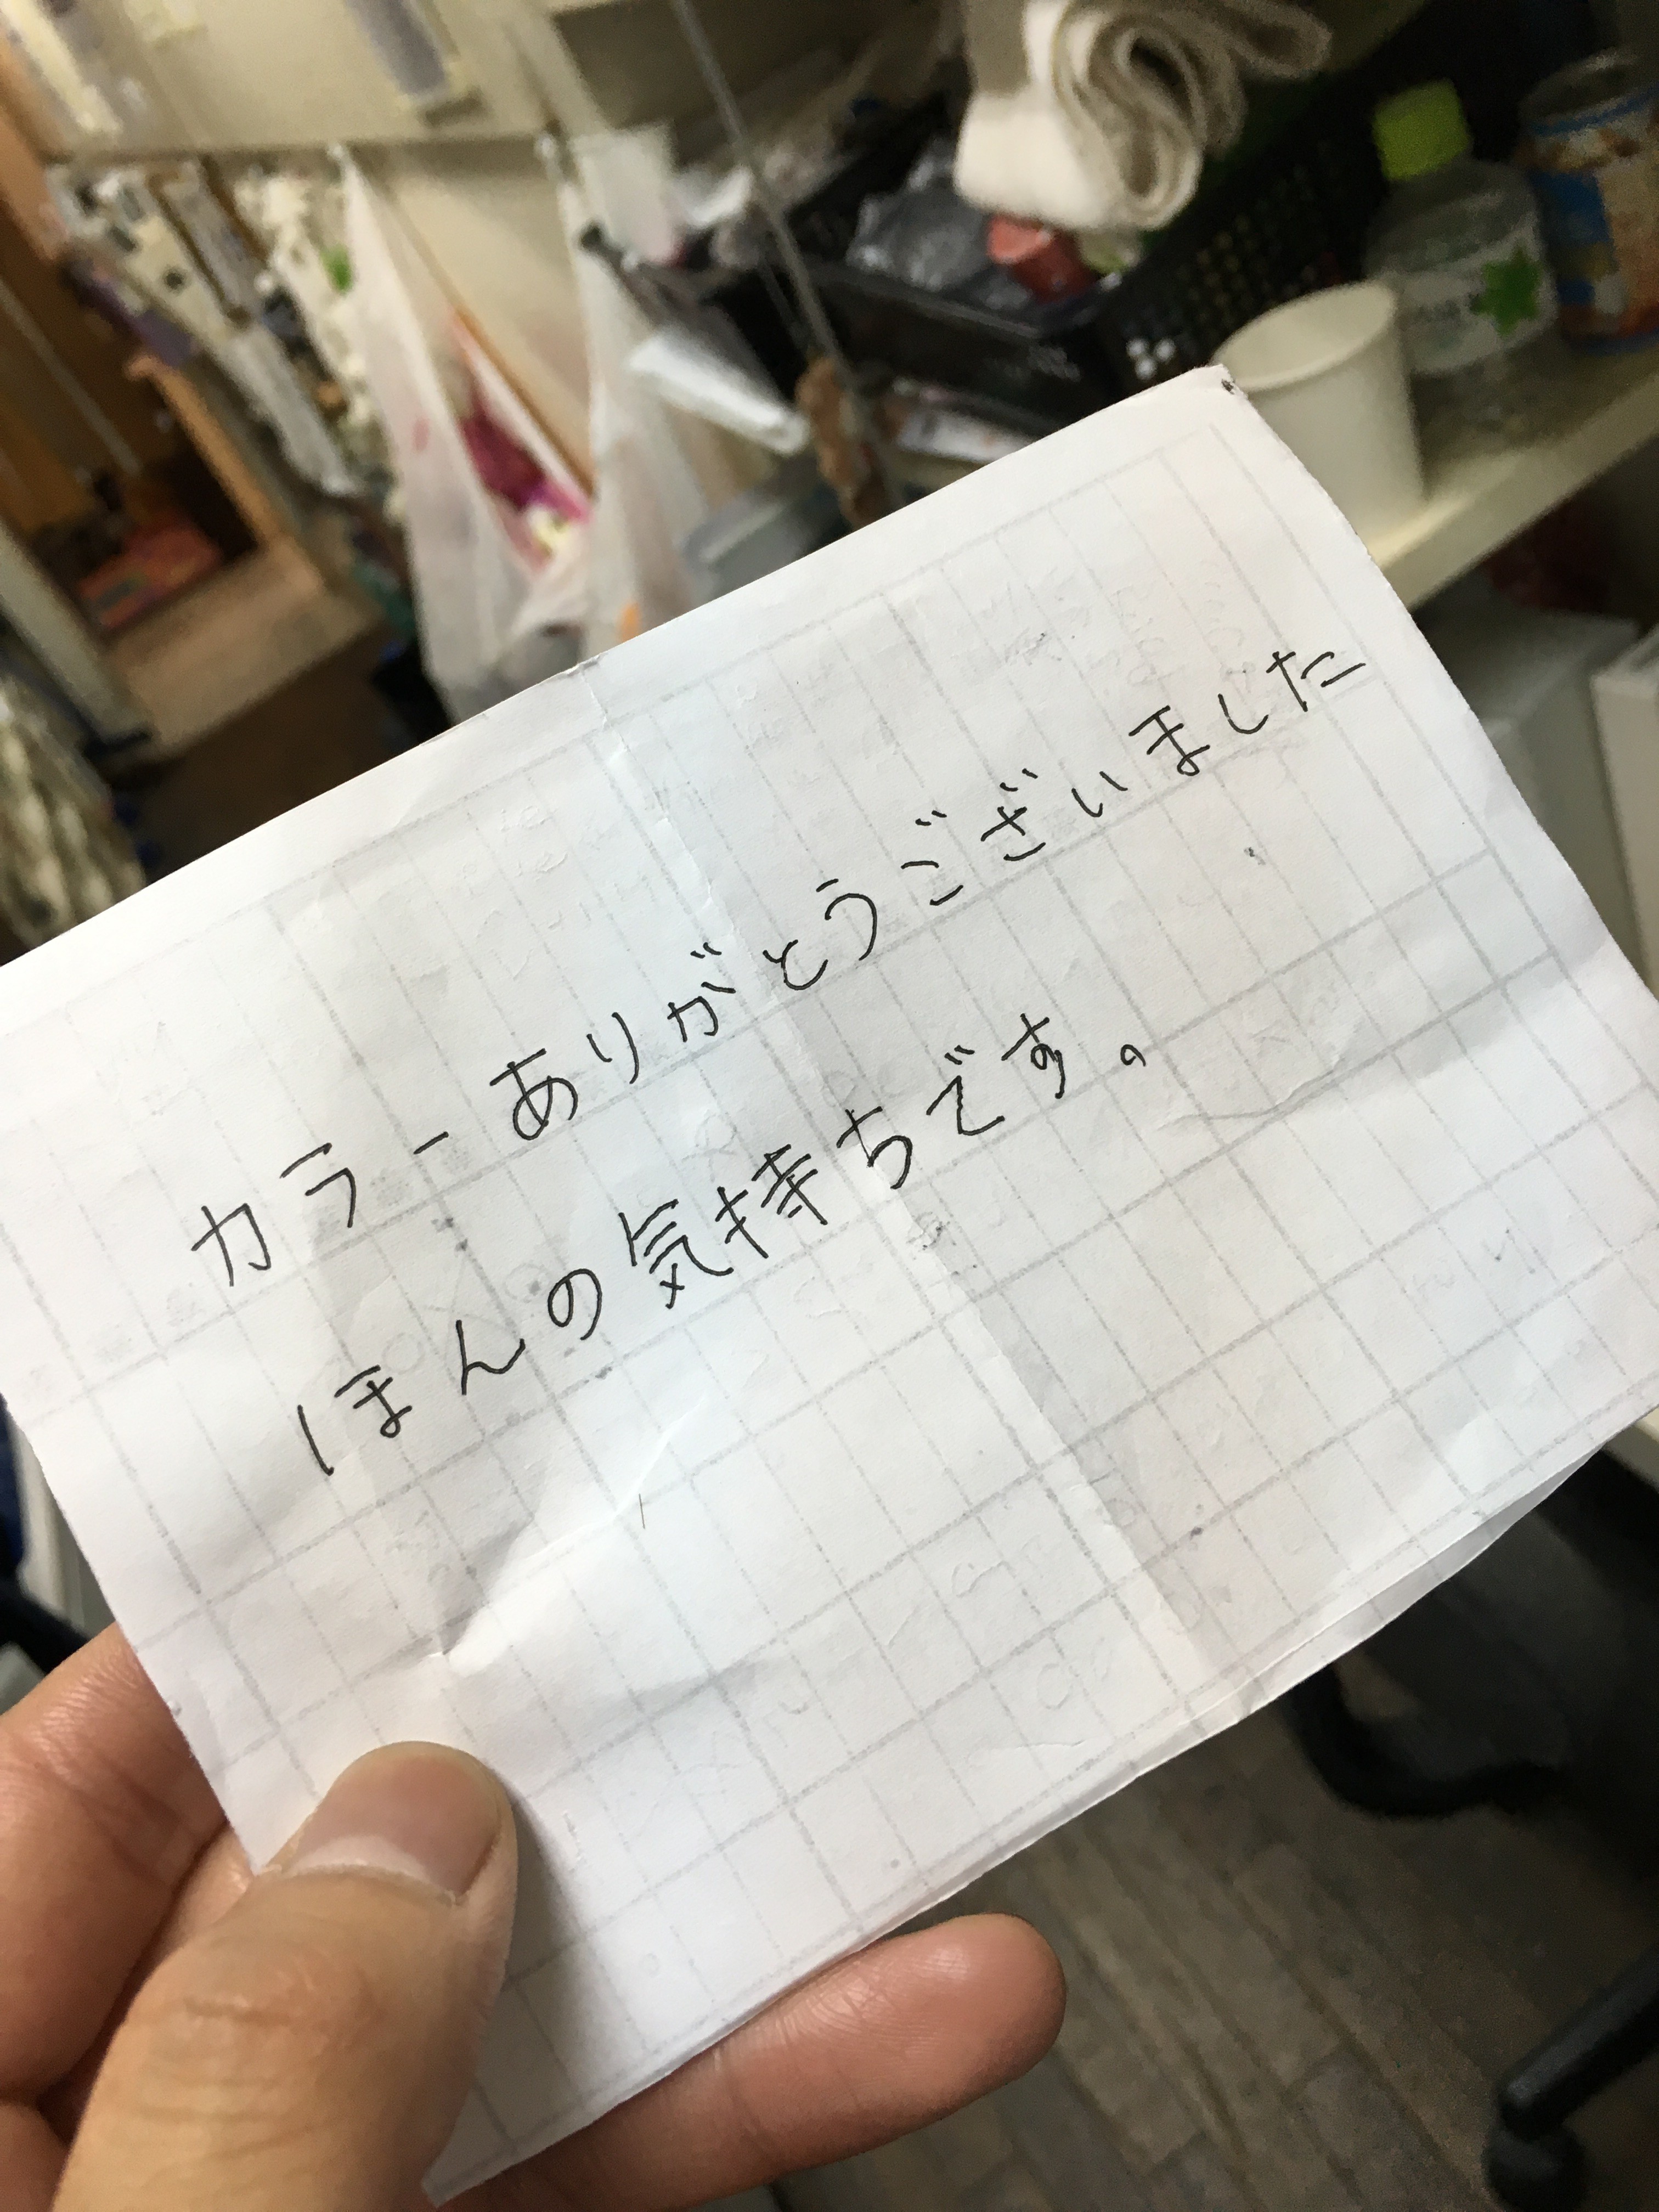 カラーありがとうございました
ほんの気持ちです。